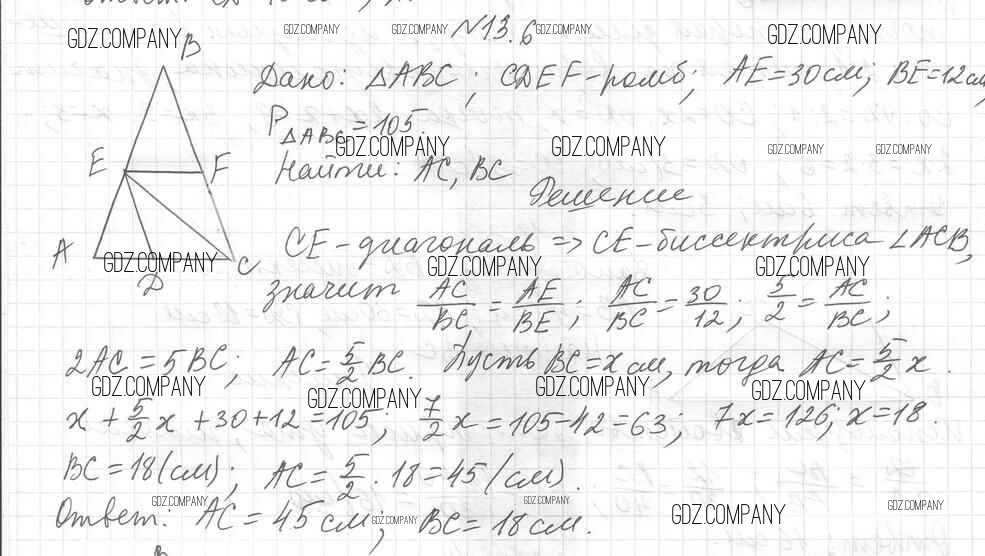 №13.6
GDZ.COMPANY GDZ.COMPANY GDZ.COMPANY GDZ.COMPANY GDZ.COMPANY
B
Дано: △ABC; CDEF-ромб; AE=30см; BE=12см,
P△ABC=105.
GDZ.COMPANY GDZ.COMPANY GDZ.COMPANY GDZ.COMPANY
E F
Найти: AC, BC
Решение
A D C
GDZ.COMPANY
CE-диагональ => CE-биссектриса ∠ACB,
GDZ.COMPANY GDZ.COMPANY
значит AC/BC = AE/BE; AC/BC = 30/12; 5/2 = AC/BC;
2AC=5BC; AC=5/2 BC. Пусть BC=x см, тогда AC=5/2 x.
GDZ.COMPANY GDZ.COMPANY GDZ.COMPANY GDZ.COMPANY
x+5/2 x+30+12=105; 7/2 x=105-42=63; 7x=126; x=18.
BC=18(см); AC=5/2·18=45(см).
GDZ.COMPANY GDZ.COMPANY
Ответ: AC=45см; BC=18см.
GDZ.COMPANY GDZ.COMPANY
B